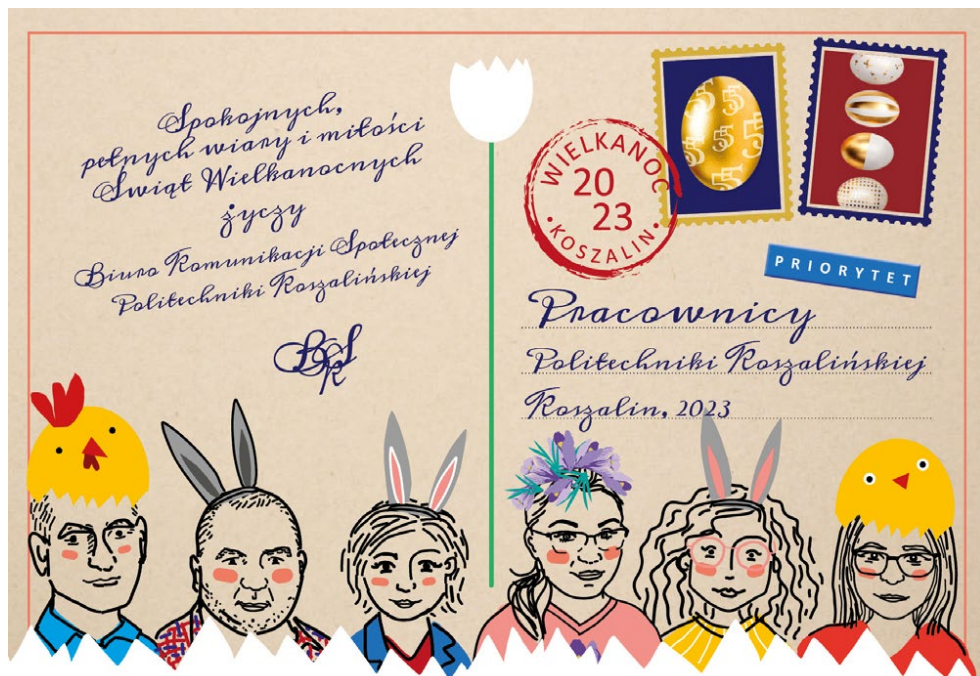 Spokojnych,
pełnych wiary i miłości
Świąt Wielkanocnych
życzy
Biuro Komunikacji Społecznej
Politechniki Koszalińskiej
BKS
WIELKANOC
20
23
• KOSZALIN •
55 55 55 55 55
PRIORYTET
Pracownicy
Politechniki Koszalińskiej
Koszalin, 2023